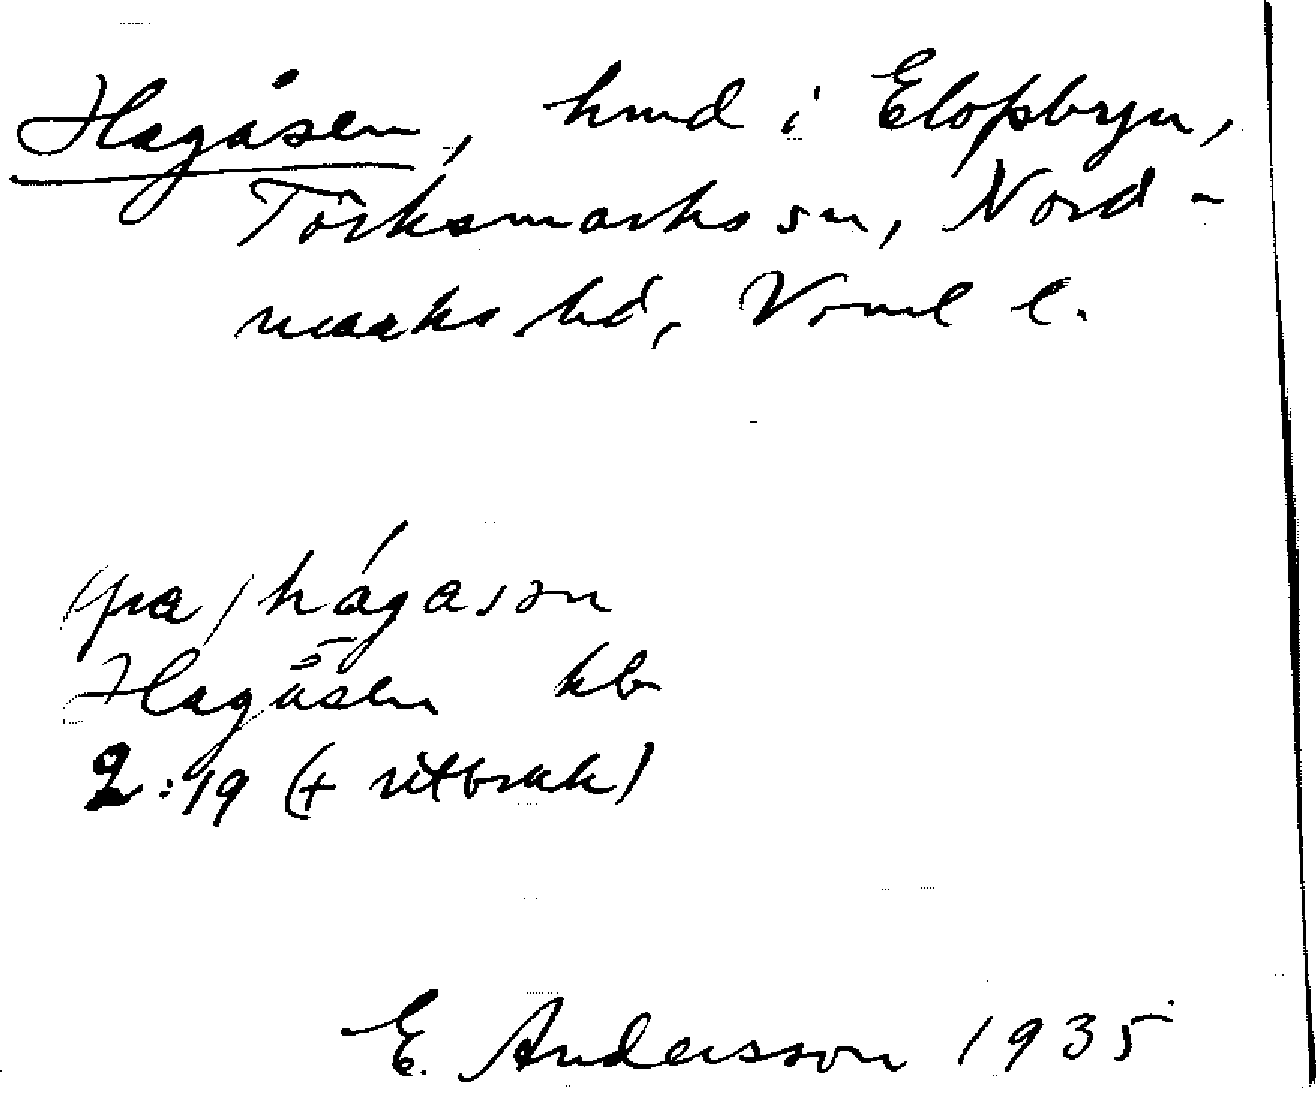 Hagåsen, hmd i Elofsbyn,
Törksmarks sn, Nord-
marks hd, Vrml l.
(pra) hágasɔn
Hagåsen kb
2:19 (+ utbruk)
E. Andersson 1935